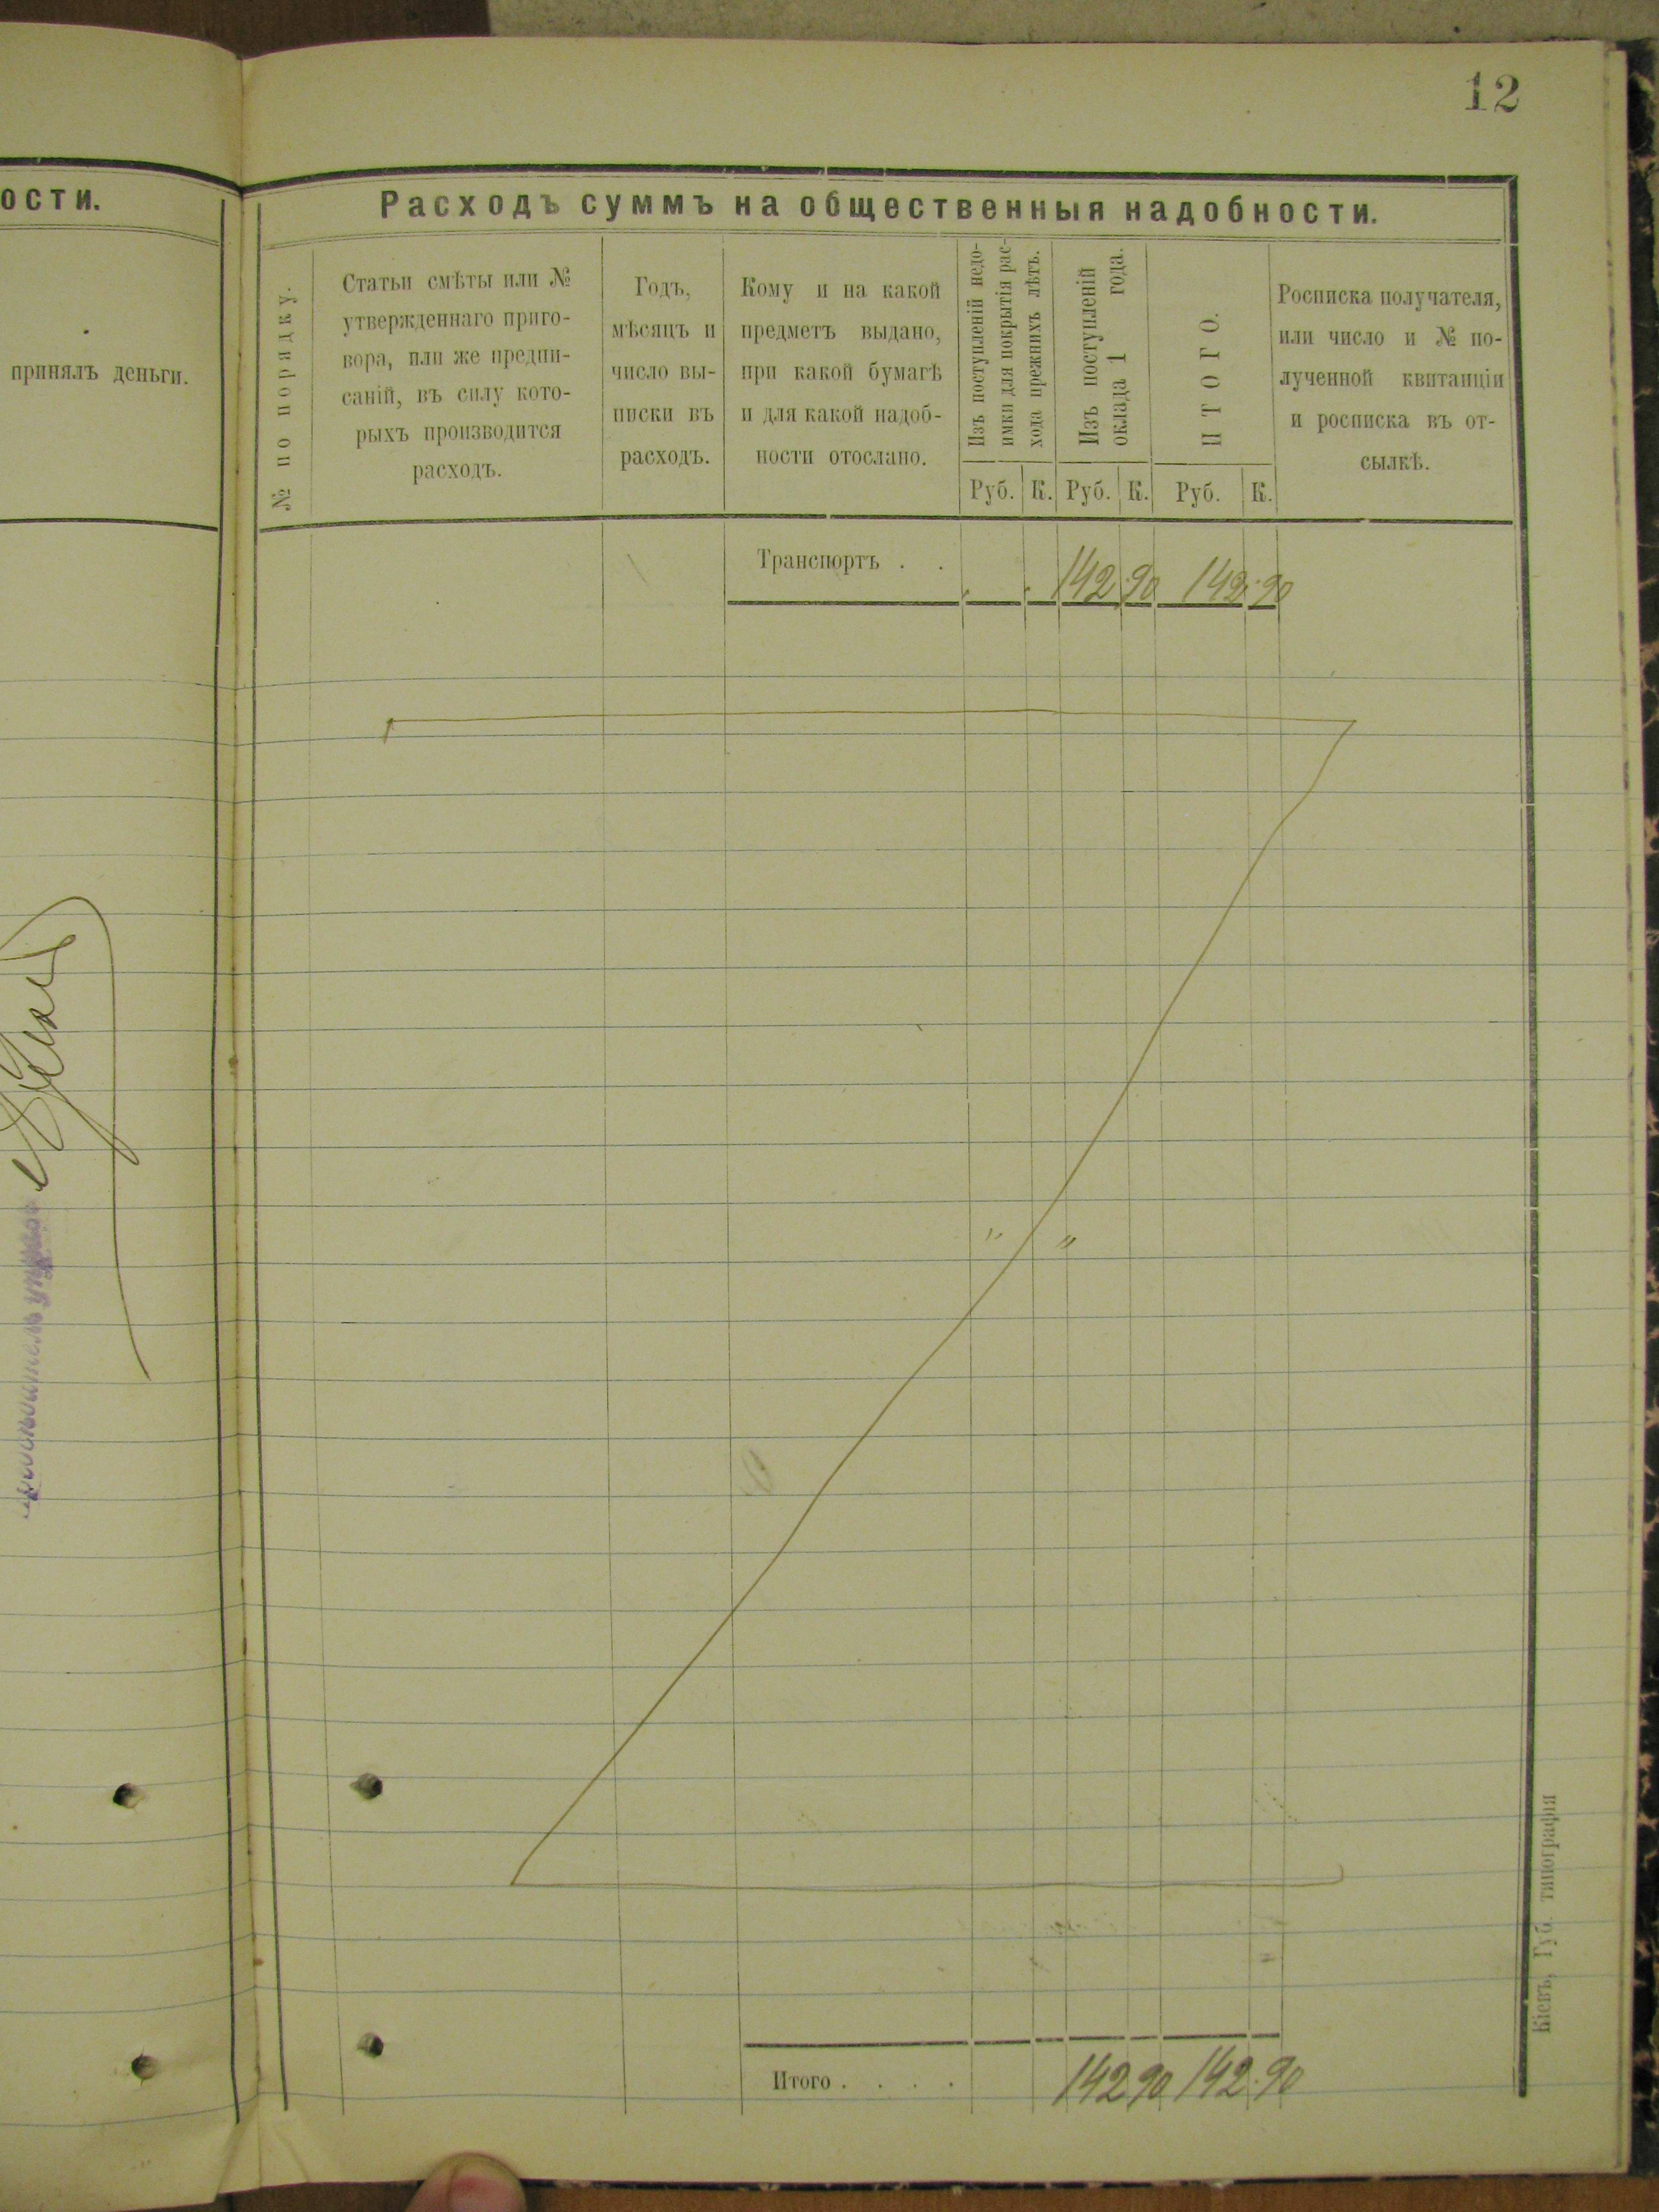 12
ости.
принялъ деньги.
Расходъ суммъ на общественныя надобности.
№ по порядку.
Статьи смѣты или №
утвержденнаго приго-
вора, или же предпи-
саній, въ силу кото-
рыхъ производится
расходъ.
Годъ,
мѣсяцъ и
число вы-
писки въ
расходъ.
Кому и на какой
предметъ выдано,
при какой бумагѣ
и для какой надоб-
ности отослано.
Изъ поступленій недо-
имки для покрытія рас-
хода прежнихъ лѣтъ.
Изъ поступленій
оклада 1 года.
ИТОГО.
Росписка получателя,
или число и № по-
лученной квитанціи
и росписка въ от-
сылкѣ.
Руб. К. Руб. К. Руб. К.
Транспортъ . . 142 90 142 90
" "
Итого . . . . 142 90 142.90
Кіевъ, Губ. типографія